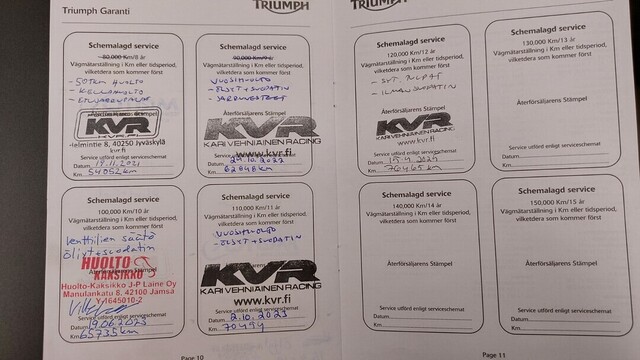 Triumph Garanti
TRIUMPH
Schemalagd service
80,000 Km/8 år
Vägmätarställning i Km eller tidsperiod,
vilketdera som kommer först
- 50TKM HUOLTO
Återförsäljarens Stämpel
KVR
Helmintie 8, 40250 Jyväskylä
kvr.fi
Service utförd enligt serviceschemat
Datum 19.11.2021
Km 54052 km
Schemalagd service
90,000 Km/9 år
Vägmätarställning i Km eller tidsperiod,
vilketdera som kommer först
VUOSIHUOLTO
- ÖLJYT + SUODATIN
- JARRUNESTEET
Återförsäljarens Stämpel
KVR
KARI VEHNIÄINEN RACING
www.kvr.fi
Service utförd enligt serviceschemat
Datum 24.10.2022
Km 62848 km
Schemalagd service
100,000 Km/10 år
Vägmätarställning i Km eller tidsperiod,
vilketdera som kommer först
Venttiilien säätö
öljyt + suodatin
HUOLTO
KAKSIKKO
Huolto-Kaksikko J-P Laine Oy
Manulankatu 8, 42100 Jämsä
Y 1645010-2
Service utförd enligt serviceschemat
Datum 19.06.2023
Km 65735 km
Schemalagd service
110,000 Km/11 år
Vägmätarställning i Km eller tidsperiod,
vilketdera som kommer först
VUOSIHUOLTO
- ÖLJYT + SUODATIN
KVR
KARI VEHNIÄINEN RACING
www.kvr.fi
Service utförd enligt serviceschemat
Datum 2.10.2023
Km 70494
Page 10
TRIUMPH
Schemalagd service
120,000 Km/12 år
Vägmätarställning i Km eller tidsperiod,
vilketdera som kommer först
- SYT. TULPAT
- ILMANSUODATIN
Återförsäljarens Stämpel
KVR
KARI VEHNIÄINEN RACING
Service utförd enligt serviceschemat
Datum
Km 76465 km
Schemalagd service
130,000 Km/13 år
Vägmätarställning i Km eller tidsperiod,
vilketdera som kommer först
Återförsäljarens Stämpel
Service utförd enligt serviceschemat
Datum
Km
Schemalagd service
140,000 Km/14 år
Vägmätarställning i Km eller tidsperiod,
vilketdera som kommer först
Återförsäljarens Stämpel
Service utförd enligt serviceschemat
Datum
Km
Schemalagd service
150,000 Km/15 år
Vägmätarställning i Km eller tidsperiod,
vilketdera som kommer först
Återförsäljarens Stämpel
Service utförd enligt serviceschemat
Datum
Km
Page 11